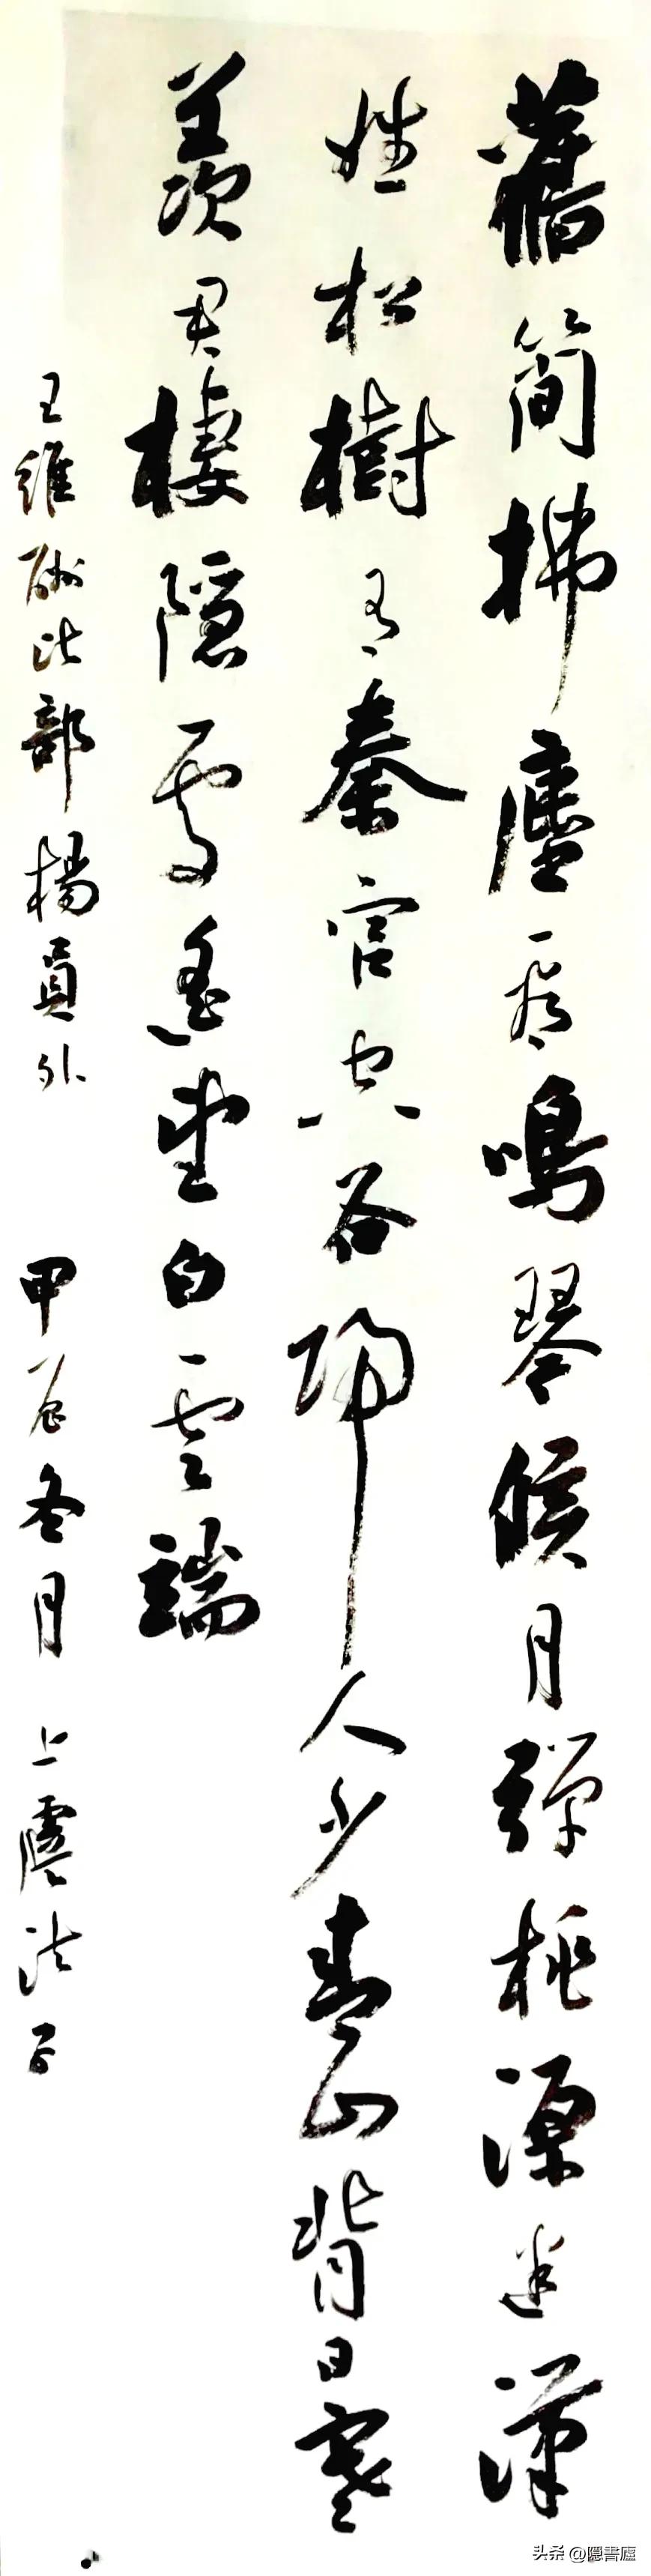 舊簡拂塵看鳴琴候月彈桃源迷漢
姓松樹有秦官空谷歸人少青山背日寒
羨君棲隱處遙望白雲端
王維酬比部楊員外 甲辰冬月 上虞法
头条 @隱書廬